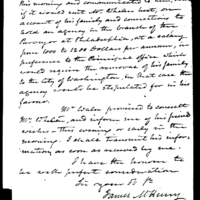 this morning and communicated to him,
if it would suit Mr Whelen best, on
account of his family and connections, to
hold an agency in the transfer of New
or Philadelphia, at a salary
from 1000 to 1200 Dollars per annum, in
preference to the Principal office which
would require the removal of his family
to the City of Washington, in that case the
agency could be stipulated for in his
favour.
Mr. Waln promised to consult
Mr. Whelen, and inform me of his friend
wishes - this evening or early in the
morning. I shall transmit his infor-
mation as soon as received by me.
I have the honour to
be with perfect consideration
Sir your Ob St
James McHenry